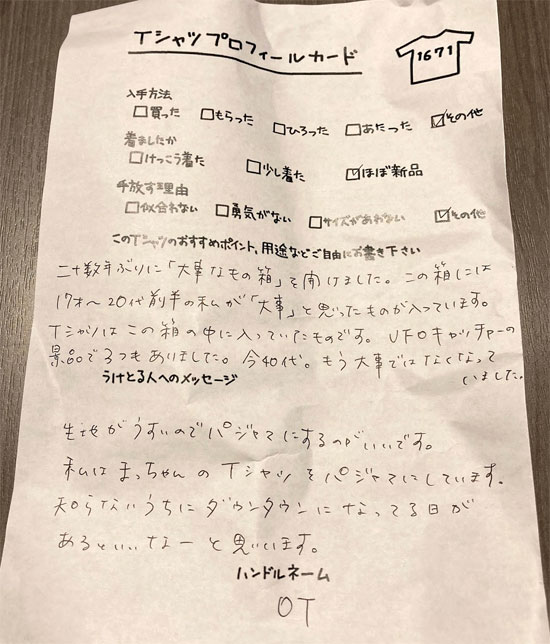 Tシャツプロフィールカード
1671
入手方法
□買った □もらった □ひろった □あたった ☑その他
着ましたか
□けっこう着た □少し着た ☑ほぼ新品
手放す理由
□似合わない □勇気がない □サイズがあわない ☑その他
このTシャツのおすすめポイント、用途などご自由にお書き下さい
二十数年ぶりに「大事なもの箱」を開けました。この箱には
17才〜20代前半の私が「大事」と思ったものが入っています。
Tシャツはこの箱の中に入っていたものです。UFOキャッチャーの
景品で3つもありました。今40代。もう大事ではなくなって
いました。
うけとる人へのメッセージ
生地がうすいのでパジャマにするのがいいです。
私はまっちゃんのTシャツをパジャマにしています。
知らないうちにダウンタウンになってる日が
あるといいなーと思います。
ハンドルネーム
OT